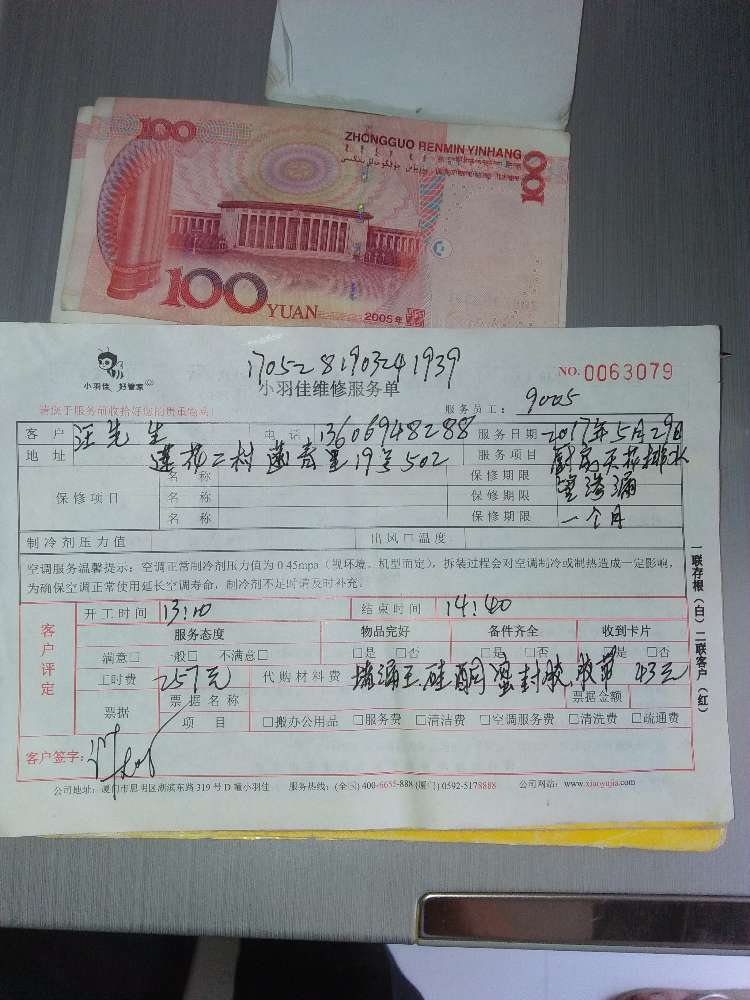 100
ZHONGGUO RENMIN YINHANG
100
100 YUAN
2005年
170528190324 1939
小羽佳 好管家
小羽佳维修服务单
NO.0063079
请您于服务前收拾好您的贵重物品
服务员工: 9005
客 户 汪先生 电 话 13606948288 服务日期 2017年5月29日
地 址 莲花二村 19号502 服务项目 厨房天花排水
保修项目
名 称 保修期限 管渗漏
名 称 保修期限
名 称 保修期限 一个月
制冷剂压力值 出风口温度
空调服务温馨提示:空调正常制冷剂压力值为0.45mpa(视环境、机型而定),拆装过程会对空调制冷或制热造成一定影响,
为确保空调正常使用延长空调寿命,制冷剂不足时请及时补充。
一联存根(白)二联客户(红)
客户评定
开工时间 13:10 结束时间 14:40
服务态度 物品完好 备件齐全 收到卡片
满意□ 一般□ 不满意□ □是 □否 □是 □否 是 □否
工时费 257元 代购材料费 堵漏王、硅酮密封胶、 43元
票据 票据名称 票据金额
项 目 □搬办公用品 □服务费 □清洁费 □空调服务费 □清洗费 □疏通费
客户签字:
公司地址:厦门市思明区湖滨东路319号D幢小羽佳 服务热线:(全国)400-6655-888(厦门)0592-5178888 公司网站:www.xiaoyujia.com